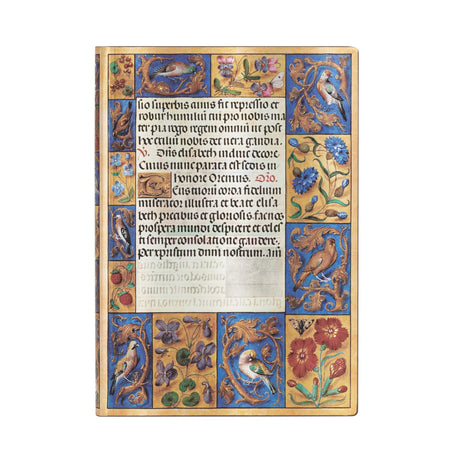 sio superbis anus fit repressio et
robur humiliū tui pro nobis ma
ter pia rogo regem omniū ut post
hoc exiliū nobis det vera gaudia.
V. Dn̄s elisabeth induit decore
Cuius nunc parata est sedis in
honore Oremus. Oro.
Tuorū corda fidelium
miserator illustra et beate elisa
beth precibus et gloriosis. facnos
prospera mundi despicere et celes
ti semper consolatione gaudere.
Per xpristum dnm̄ nostrum. am̄